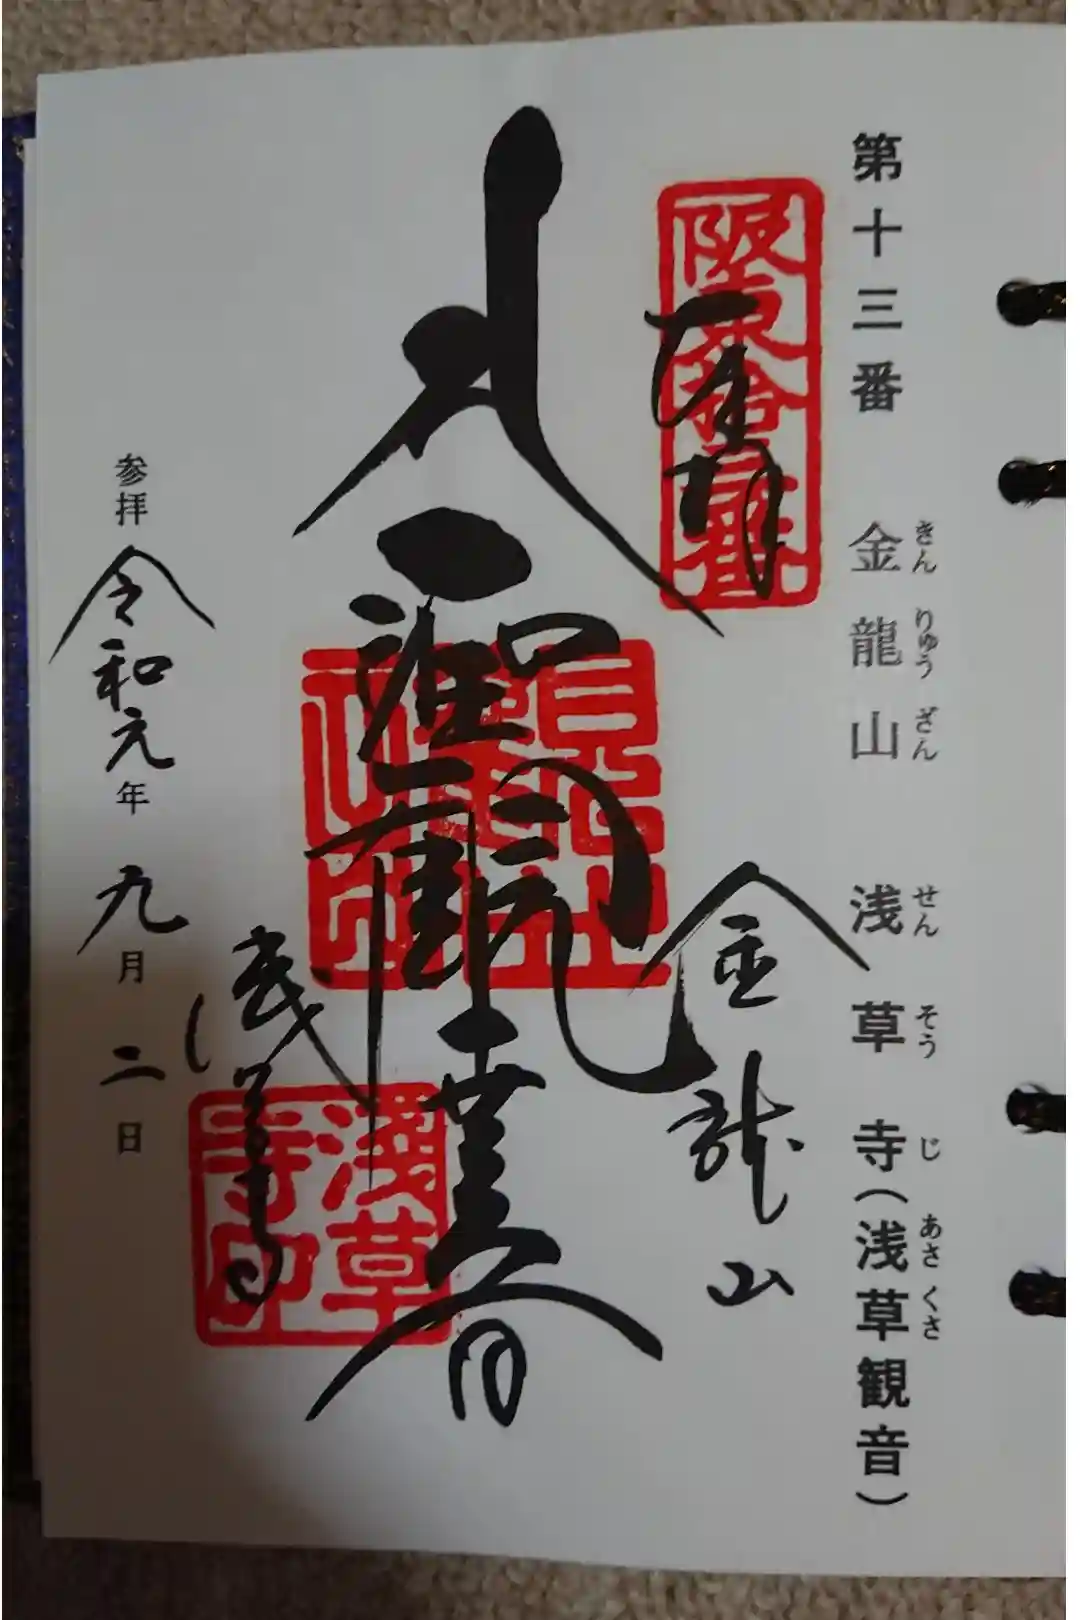 第十三番 金龍山 浅草寺(浅草観音)
きん りゅう ざん せん そう じ あさ くさ
阪東拾三番
奉拝
聖観世音
金龍山
浅草寺
淺草寺印
参拝 令和元年 九月二日